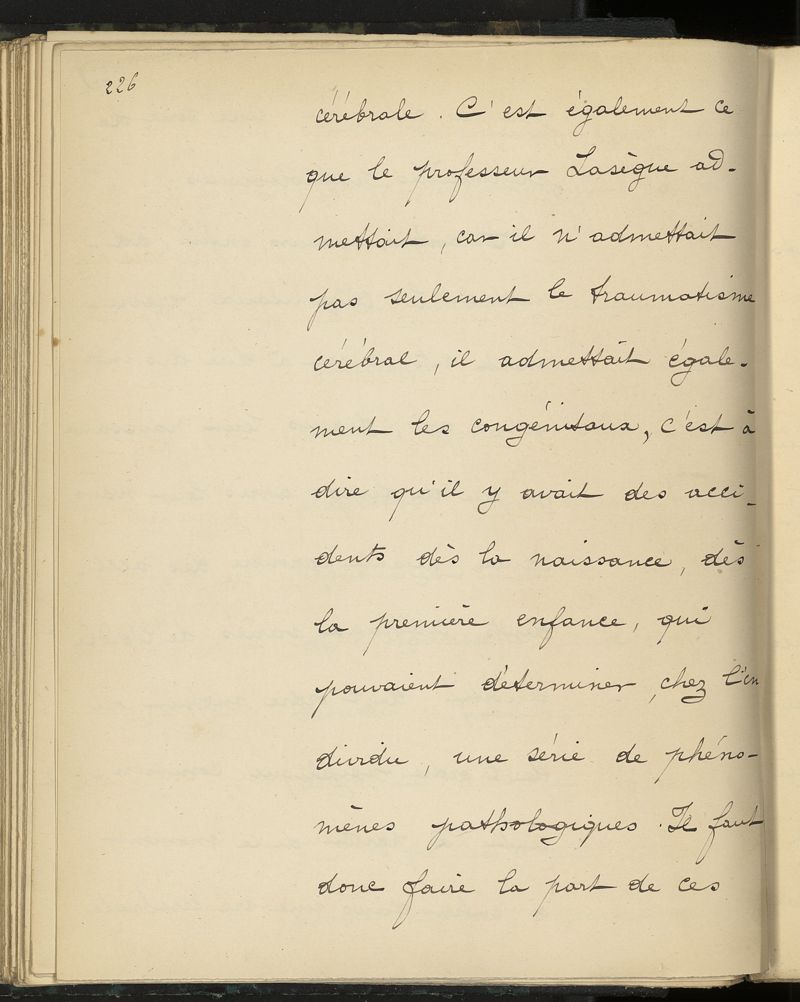 226
cérébrale. C'est également ce
que le professeur Lasègue ad-
mettait, car il n'admettait
pas seulement le traumatisme
cérébral, il admettait égale-
ment les congénitaux, c'est à
dire qu'il y avait des acci-
dents dès la naissance, dès
la première enfance, qui
pouvaient déterminer, chez l'in
dividu, une série de phéno-
mènes pathologiques. Il faut
donc faire la part de ces